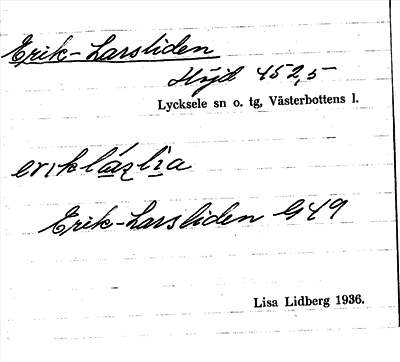 Erik-Larsliden
Höjd 452,5
Lycksele sn o. tg, Västerbottens l.
eriklázlia
Erik-Larsliden G49
Lisa Lidberg 1936.